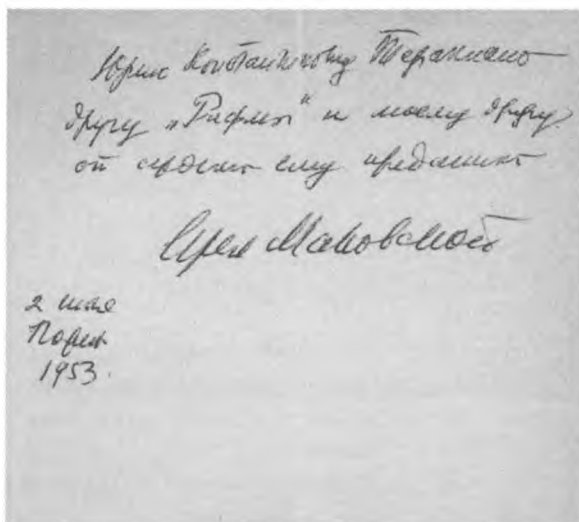 Юрию Константиновичу Терапиано
другу „Рифмы“ и моему другу
от сердечно ему преданного
Сергея Маковского
2 мая
Париж
1953.